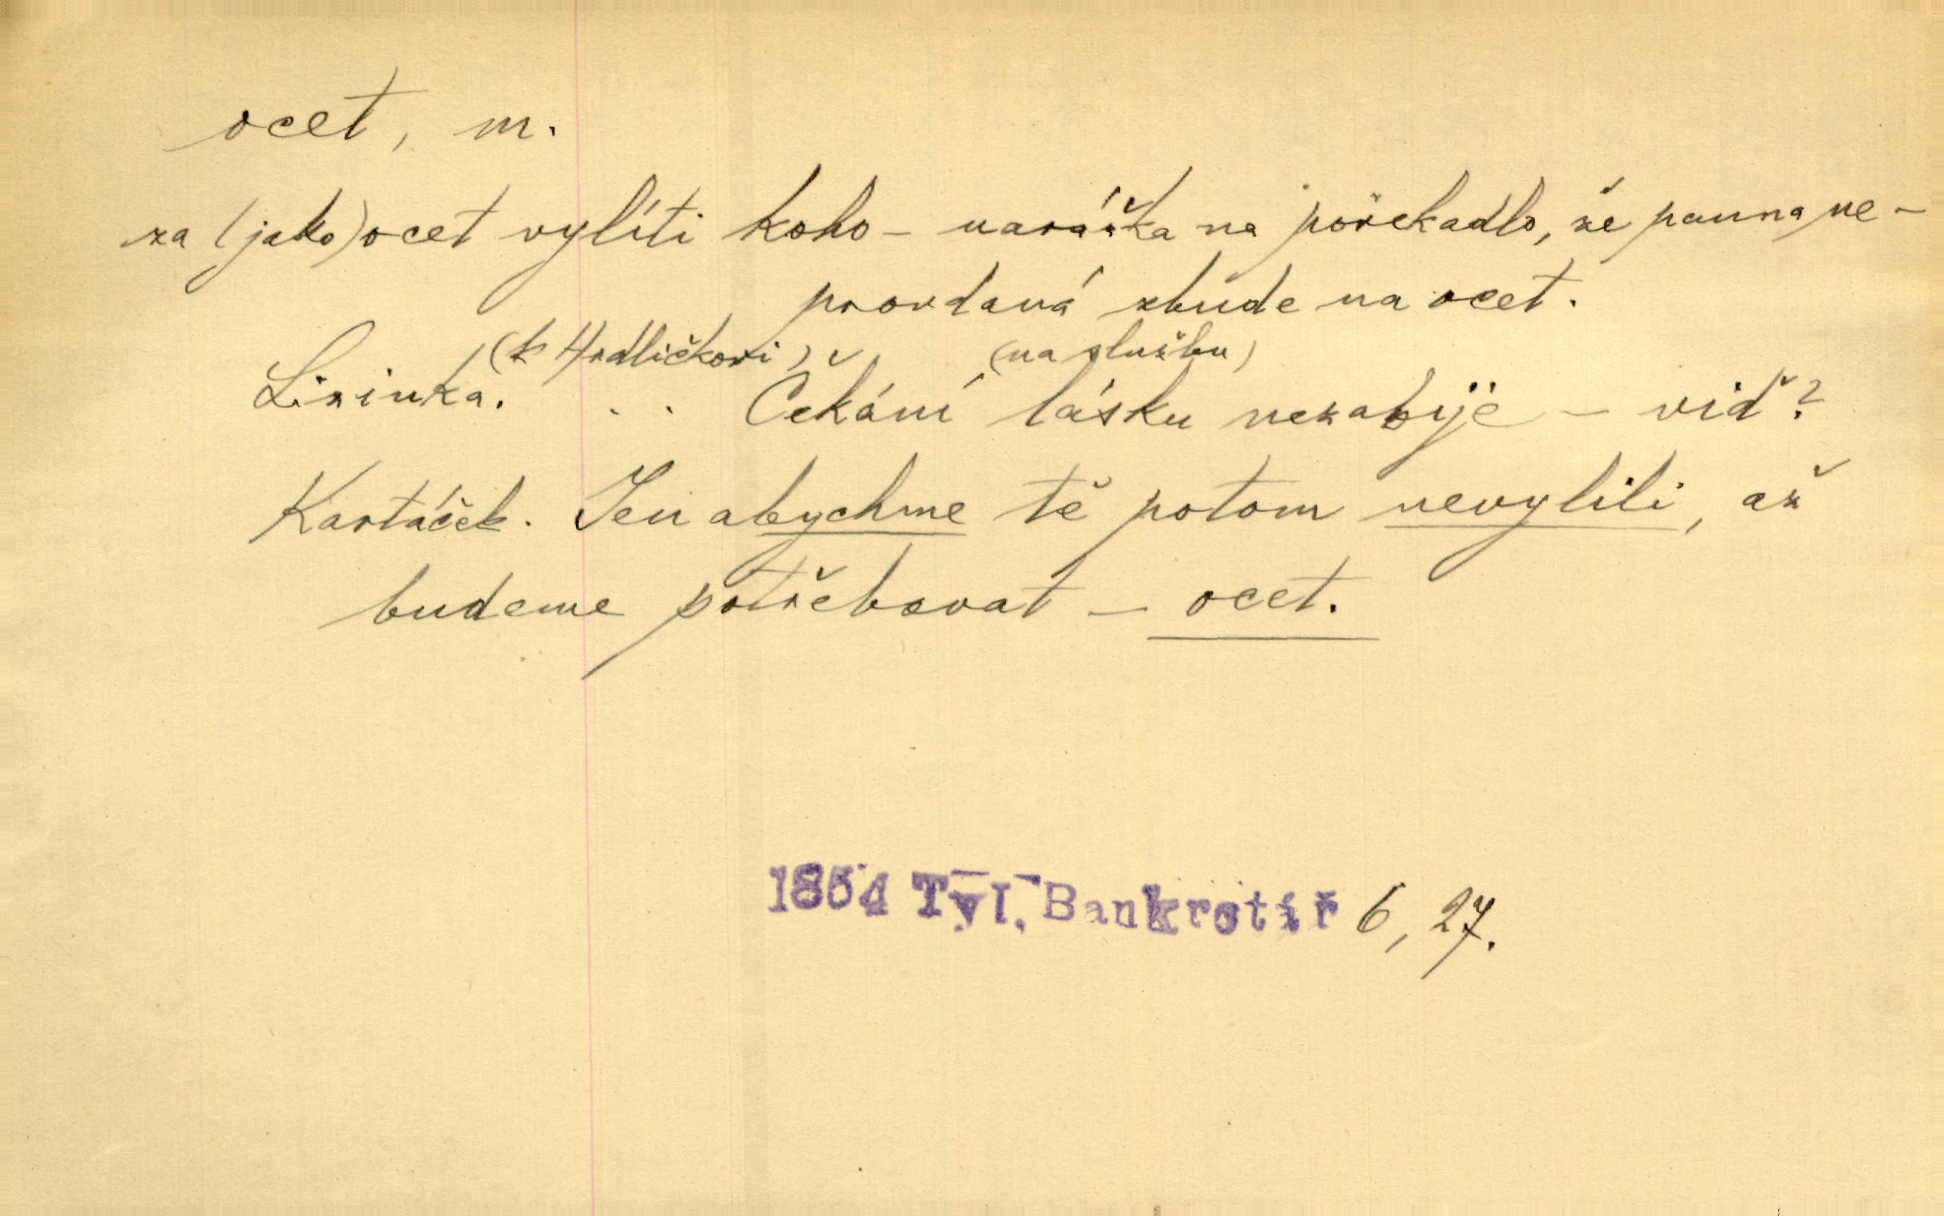 ocet, m.
za (jako) ocet vylíti koho – narážka na pořekadlo, že panna ne-
provdaná zbude na ocet.
(k Hrdličkovi) (na službu)
Lizinka. . . Čekání lásku nezabije – viď?
Kartáček. Jen abychme tě potom nevylili, až
budeme potřebovat – ocet.
1854 Tyl, Bankrotář 6, 27.